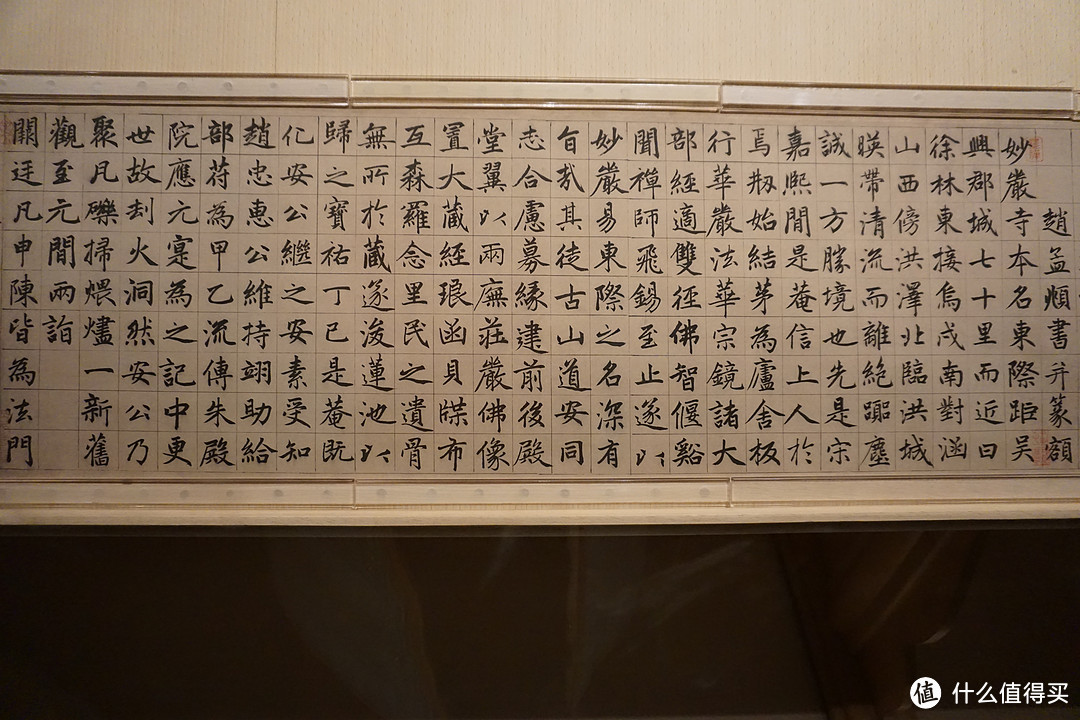 趙孟頫書并篆額
妙嚴寺本名東際距吳
興郡城七十里而近曰
徐林東接烏戍南對涵
山西傍洪澤北臨洪城
暎帶清流而離絕囂塵
誠一方勝境也先是宋
嘉熈間是菴信上人於
焉剏始結茅為廬舍板
行華嚴法華宗鏡諸大
部經適雙徑佛智偃谿
聞禪師飛錫至止遂以
妙嚴易東際之名深有
旨㢤其徒古山道安同
志合慮募緣建前後殿
堂翼以兩廡莊嚴佛像
置大藏經琅函貝牒布
互森羅念里民之遺骨
無所於藏遂浚蓮池以
歸之寶祐丁巳是菴既
化安公繼之安素受知
趙忠惠公維持翊助給
部苻為甲乙流傳朱殿
院應元寔為之記中更
世故刼火洞然安公乃
聚凡礫掃煨燼一新舊
觀至元間兩詣
闕廷凡申陳皆為法門
值 什么值得买